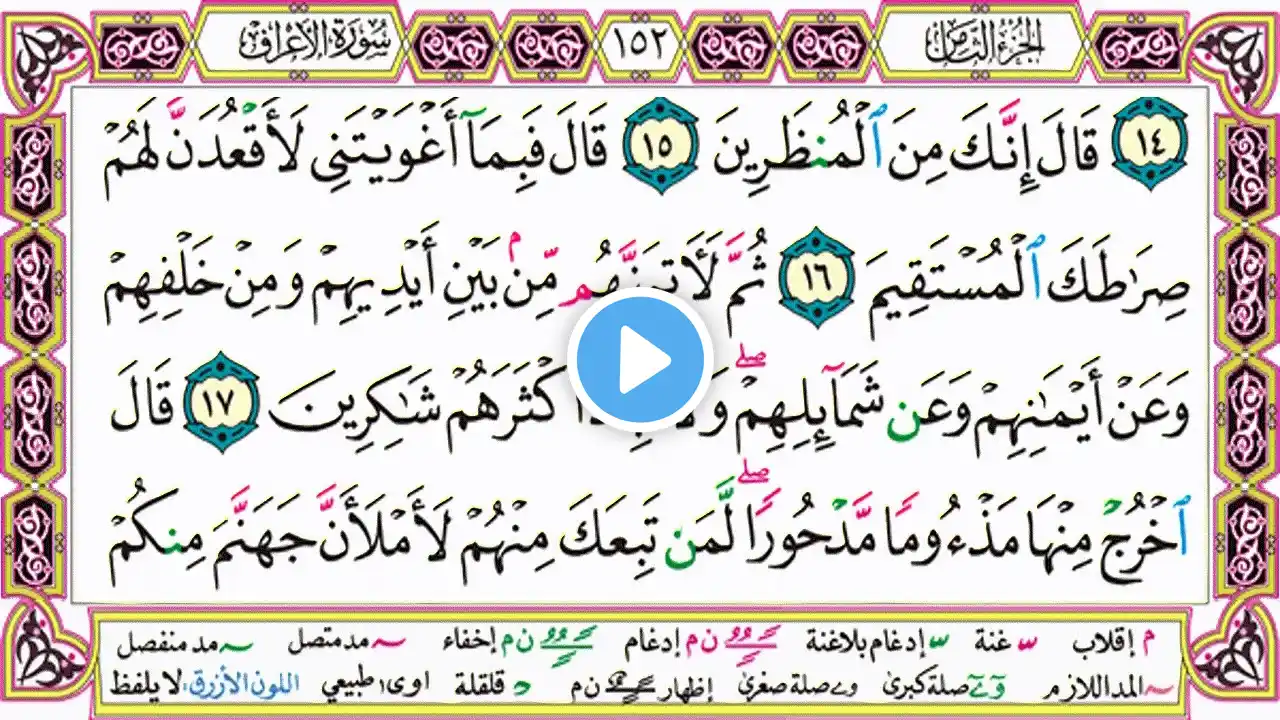 الجزء الثامن ١٥٢ سورة الأعراف
١٤ قَالَ إِنَّكَ مِنَ ٱلْمُنظَرِينَ ١٥ قَالَ فَبِمَآ أَغْوَيْتَنِى لَأَقْعُدَنَّ لَهُمْ
صِرَٰطَكَ ٱلْمُسْتَقِيمَ ١٦ ثُمَّ لَأَتِيَنَّهُم مِّنۢ بَيْنِ أَيْدِيهِمْ وَمِنْ خَلْفِهِمْ
وَعَنْ أَيْمَٰنِهِمْ وَعَن شَمَآئِلِهِمْ ۖ كْثَرَهُمْ شَٰكِرِينَ ١٧ قَالَ
ٱخْرُجْ مِنْهَا مَذْءُومًا مَّدْحُورًا ۖ لَّمَن تَبِعَكَ مِنْهُمْ لَأَمْلَأَنَّ جَهَنَّمَ مِنكُمْ
م إقلاب ـّ غنة ـّ إدغام بلاغنة ن م إدغام ن م إخفاء ~ مد متصل ~ مد منفصل
~ المد اللازم و ے صلة كبرىٰ و ے صلة صغرىٰ إظهار ن م د قلقلة اوى طبيعي اللون الأزرق لا يلفظ